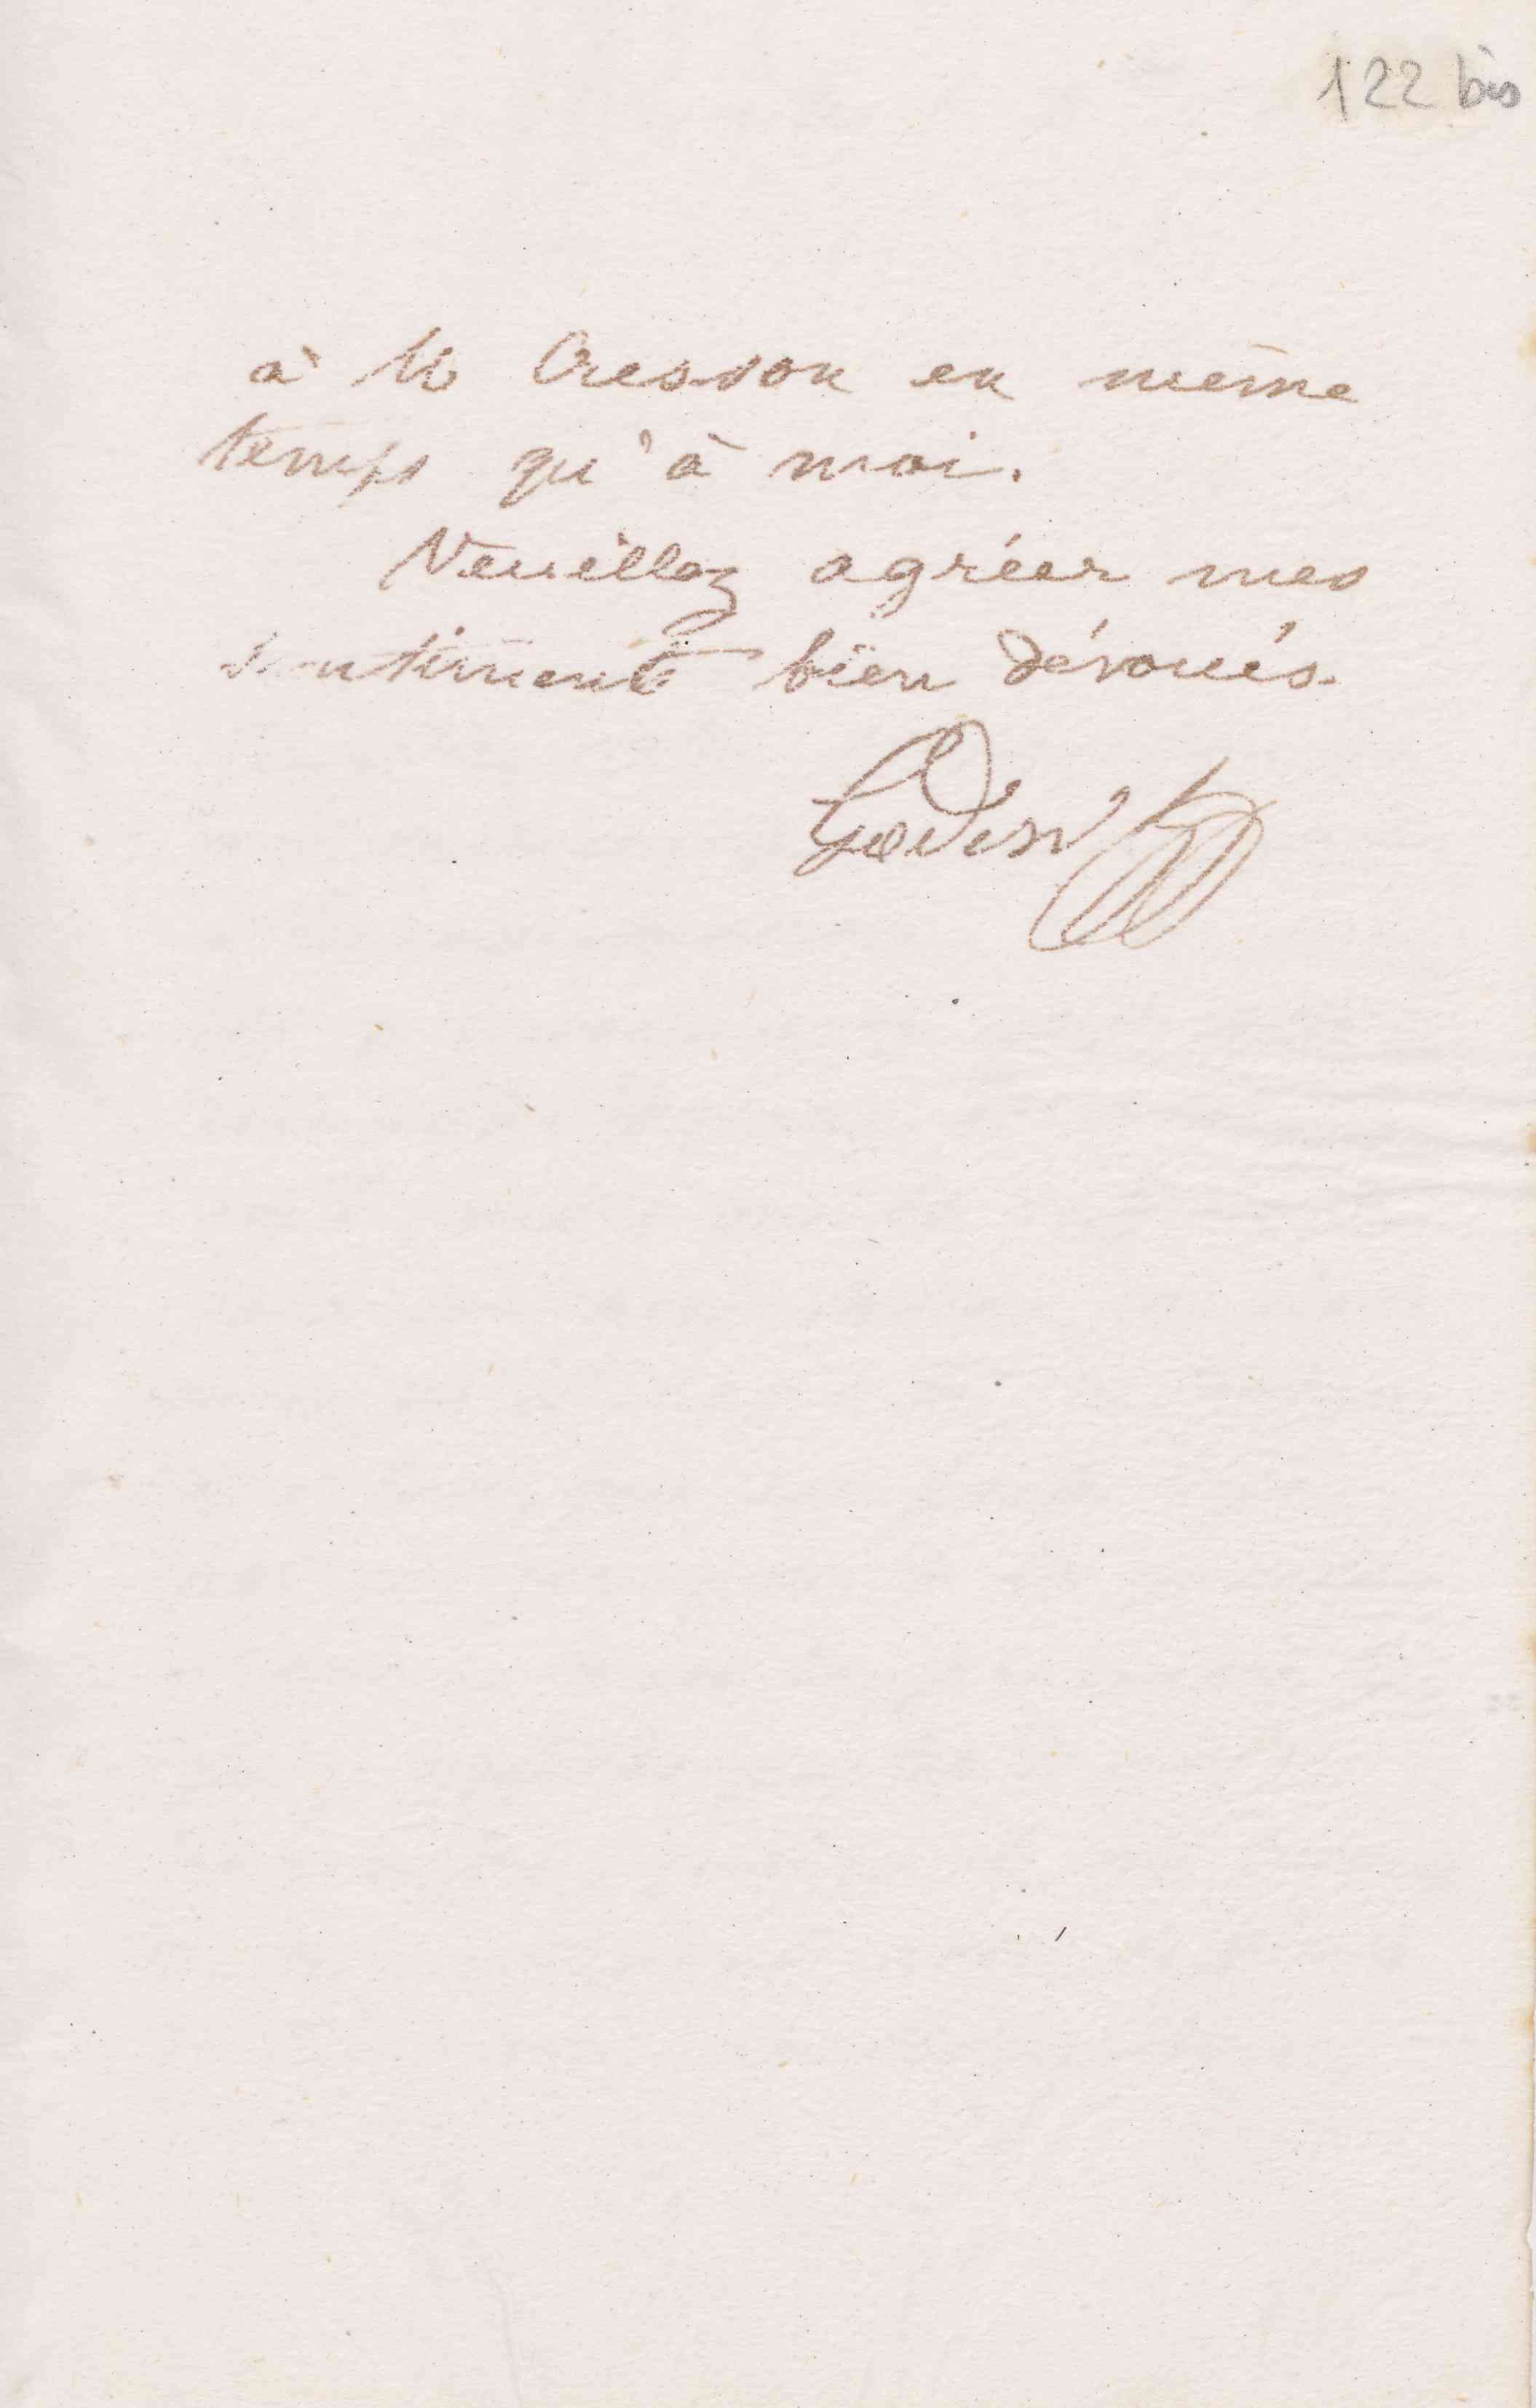 122 bis
à M Cresson en même
temps qu'à moi.
Veuillez agréer mes
sentiments bien dévoués.
Godin